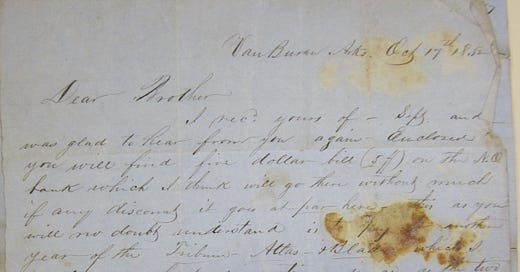 Van Buren Arks. Oct 17th 185
Dear Brother
I recd yours of - Sept and
was glad to hear from you again - Enclosed
you will find five dollar bill (5$) on the N.O.
bank which I think will go there without much
if any discount it goes at par here - this as you
will no doubt understand is to pay for another
year of the Tribune - Atlas - & Blade which I
two